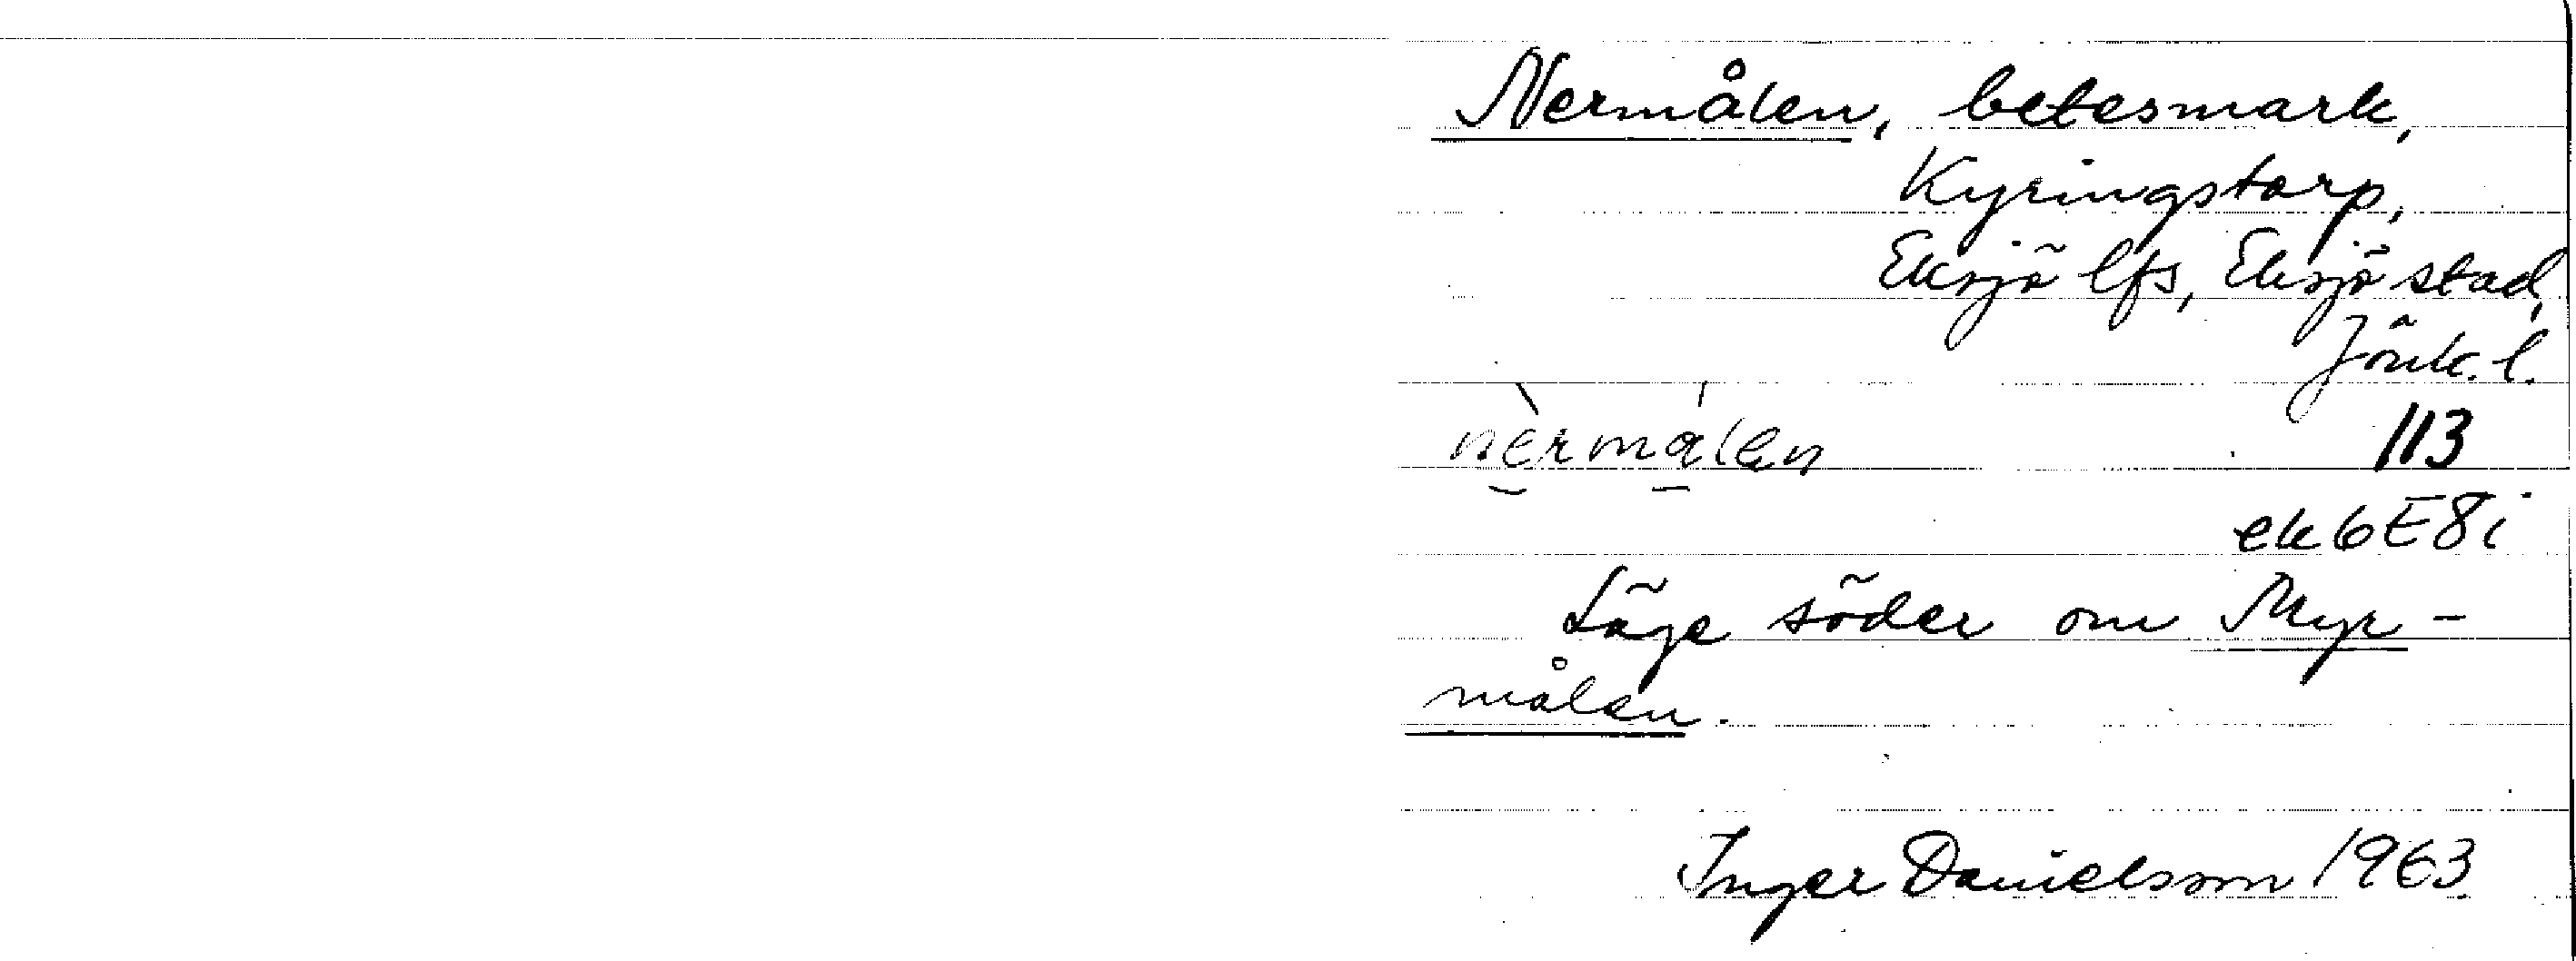 Nermålen, betesmark,
Kyringstorp,
Eksjö lfs, Eksjö stad,
Jönk. l.
nèrmálen 113
ek 6E8i
Läge söder om Myr-
målen.
Inger Danielsson 1963